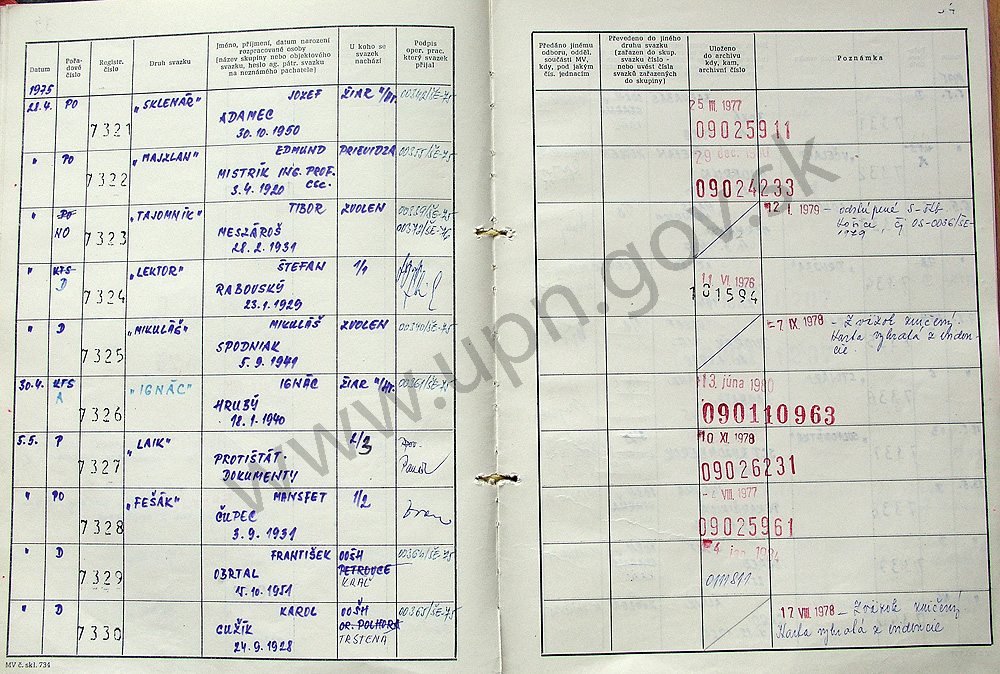 Datum
Pořadové číslo
Registr. číslo
Druh svazku
Jméno, příjmení, datum narození
rozpracované osoby
(název skupiny nebo objektového
svazku, heslo ag. pátr. svazku
na neznámého pachatele)
U koho se
svazek
nachází
Podpis
oper. prac.
který svazek
přijal
Předáno jinému
odboru, odděl.
součásti MV,
kdy, pod jakým
čís. jednacím
Převedeno do jiného
druhu svazku
(zařazen do skup.
svazku číslo -
nebo uvést čísla
svazků zařazených
do skupiny)
Uloženo
do archivu
kdy, kam,
archivní číslo
Poznámka
1975
28.4. PO 7321 „SKLENÁŘ" JOZEF ŽIAR n/Hr. 00342/ŠE-75
ADAMEC
30.10.1950
25 III. 1977
09025911
" PO 7322 „MAJZLAN" EDMUND PRIEVIDZA 00355/ŠE-75
MISTRÍK ING. PROF.
CSC.
3.4.1920
09024233
" PO 7323 „TAJOMNÍK" TIBOR ZVOLEN 00339/ŠE-75
NO
MESZÁROŠ 00372/ŠE-76
28.2.1931
12 I. 1979 - odstúpené S-ŠtB
Košice, čj OS-0036/ŠE-
1979
" KTS- 7324 „LEKTOR" ŠTEFAN 1/1
D
RABOVSKÝ
23.1.1929
11 VI. 1976
101594
" D 7325 „MIKULÁŠ" MIKULÁŠ ZVOLEN 00340/ŠE-75
SPODNIAK
5.9.1941
-7 IX. 1978 - Zväzok zničený.
Karta vybratá z eviden-
cie.
30.4. KTS 7326 „IGNÁC" IGNÁC ŽIAR n/Hr. 00361/ŠE-75
A
HRUBÝ
18.1.1940
13. júna 1980
090110963
5.5. P 7327 „LAIK" 2/3
PROTIŠTÁT.
DOKUMENTY
10 XI. 1978
09026231
" PO 7328 „FEŠÁK" MANSFET 1/2
ČUPEC
3.9.1931
-4 VIII. 1977
09025961
" D 7329 FRANTIŠEK OOŠH 00364/ŠE-75
PETROVCE
OBRTAL KRAĽ
15.10.1951
" D 7330 KAROL OOŠH 00365/ŠE-75
OR. POLHORA
CUŽÍK TRSTENÁ
24.9.1928
17 VIII. 1978 - Zväzok zničený
Karta vybratá z evidencie
MV č. skl. 734
www.upn.gov.sk